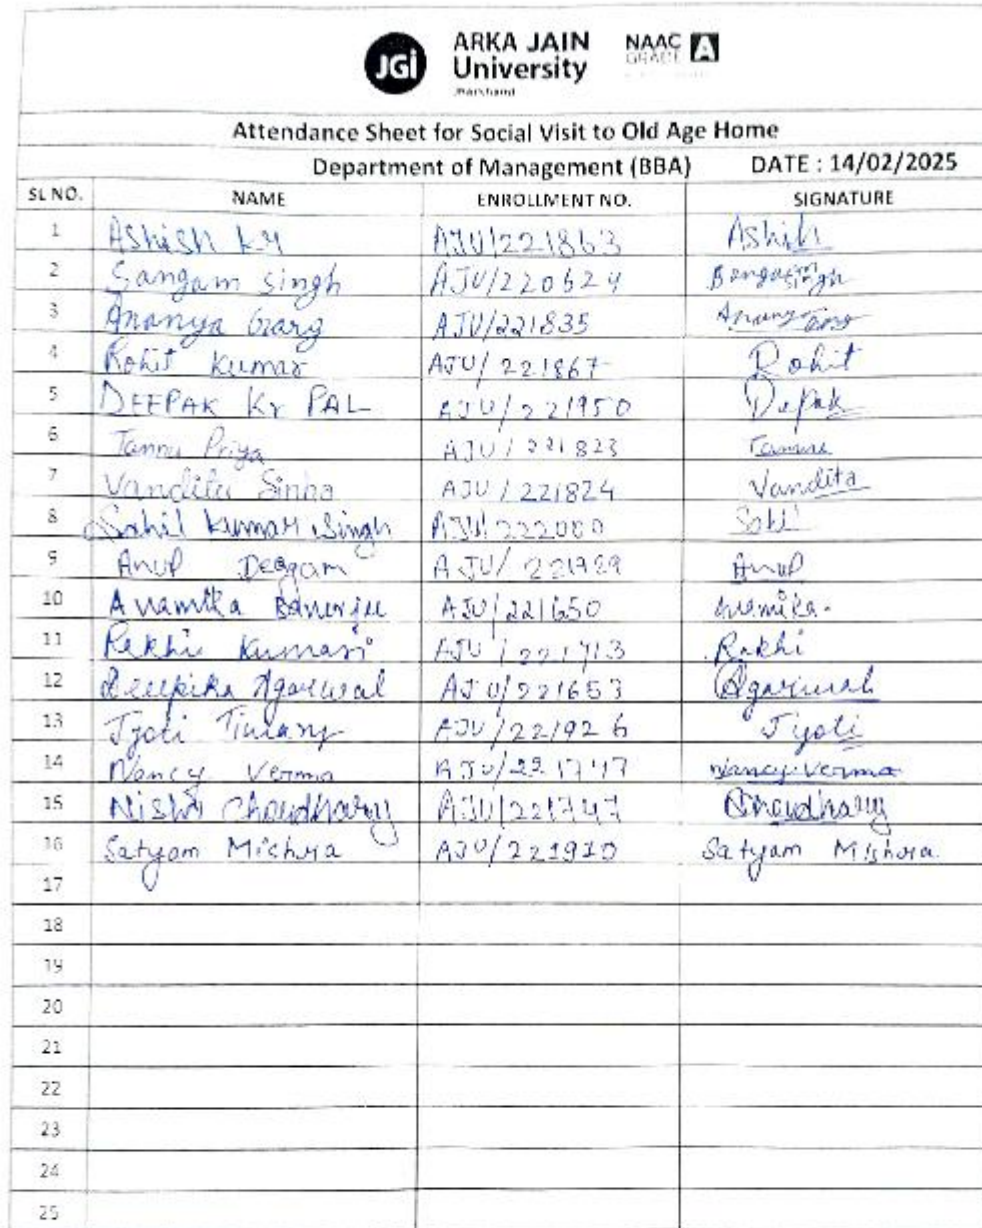 JGi ARKA JAIN University Jharkhand NAAC GRADE A
Attendance Sheet for Social Visit to Old Age Home
Department of Management (BBA) DATE : 14/02/2025
SL NO. NAME ENROLLMENT NO. SIGNATURE
1 Ashish kr AJU/221863 Ashish
2 Sangam Singh AJU/220624 Singh
3 Ananya Garg AJU/221835
4 Rohit Kumar AJU/221867 Rohit
5 DEEPAK Kr PAL AJU/221950 Depak
6 Tannu Priya AJU/221823
7 Vandita Sinha AJU/221824 Vandita
8 Sahil kumar Singh AJU/222080
9 Anup Deogam AJU/221929 Anup
10 Anamika Banerjee AJU/221650
11 Rakhi Kumari AJU/221713 Rakhi
12 Deepika Agarwal AJU/221653 Agarwal
13 Jyoti Tiwary AJU/221926 Jyoti
14 Nancy Verma Nancy Verma
15 Nisha Choudhary AJU/221747 Choudhary
16 Satyam Mishra AJU/221910 Satyam Mishra
17
18
19
20
21
22
23
24
25